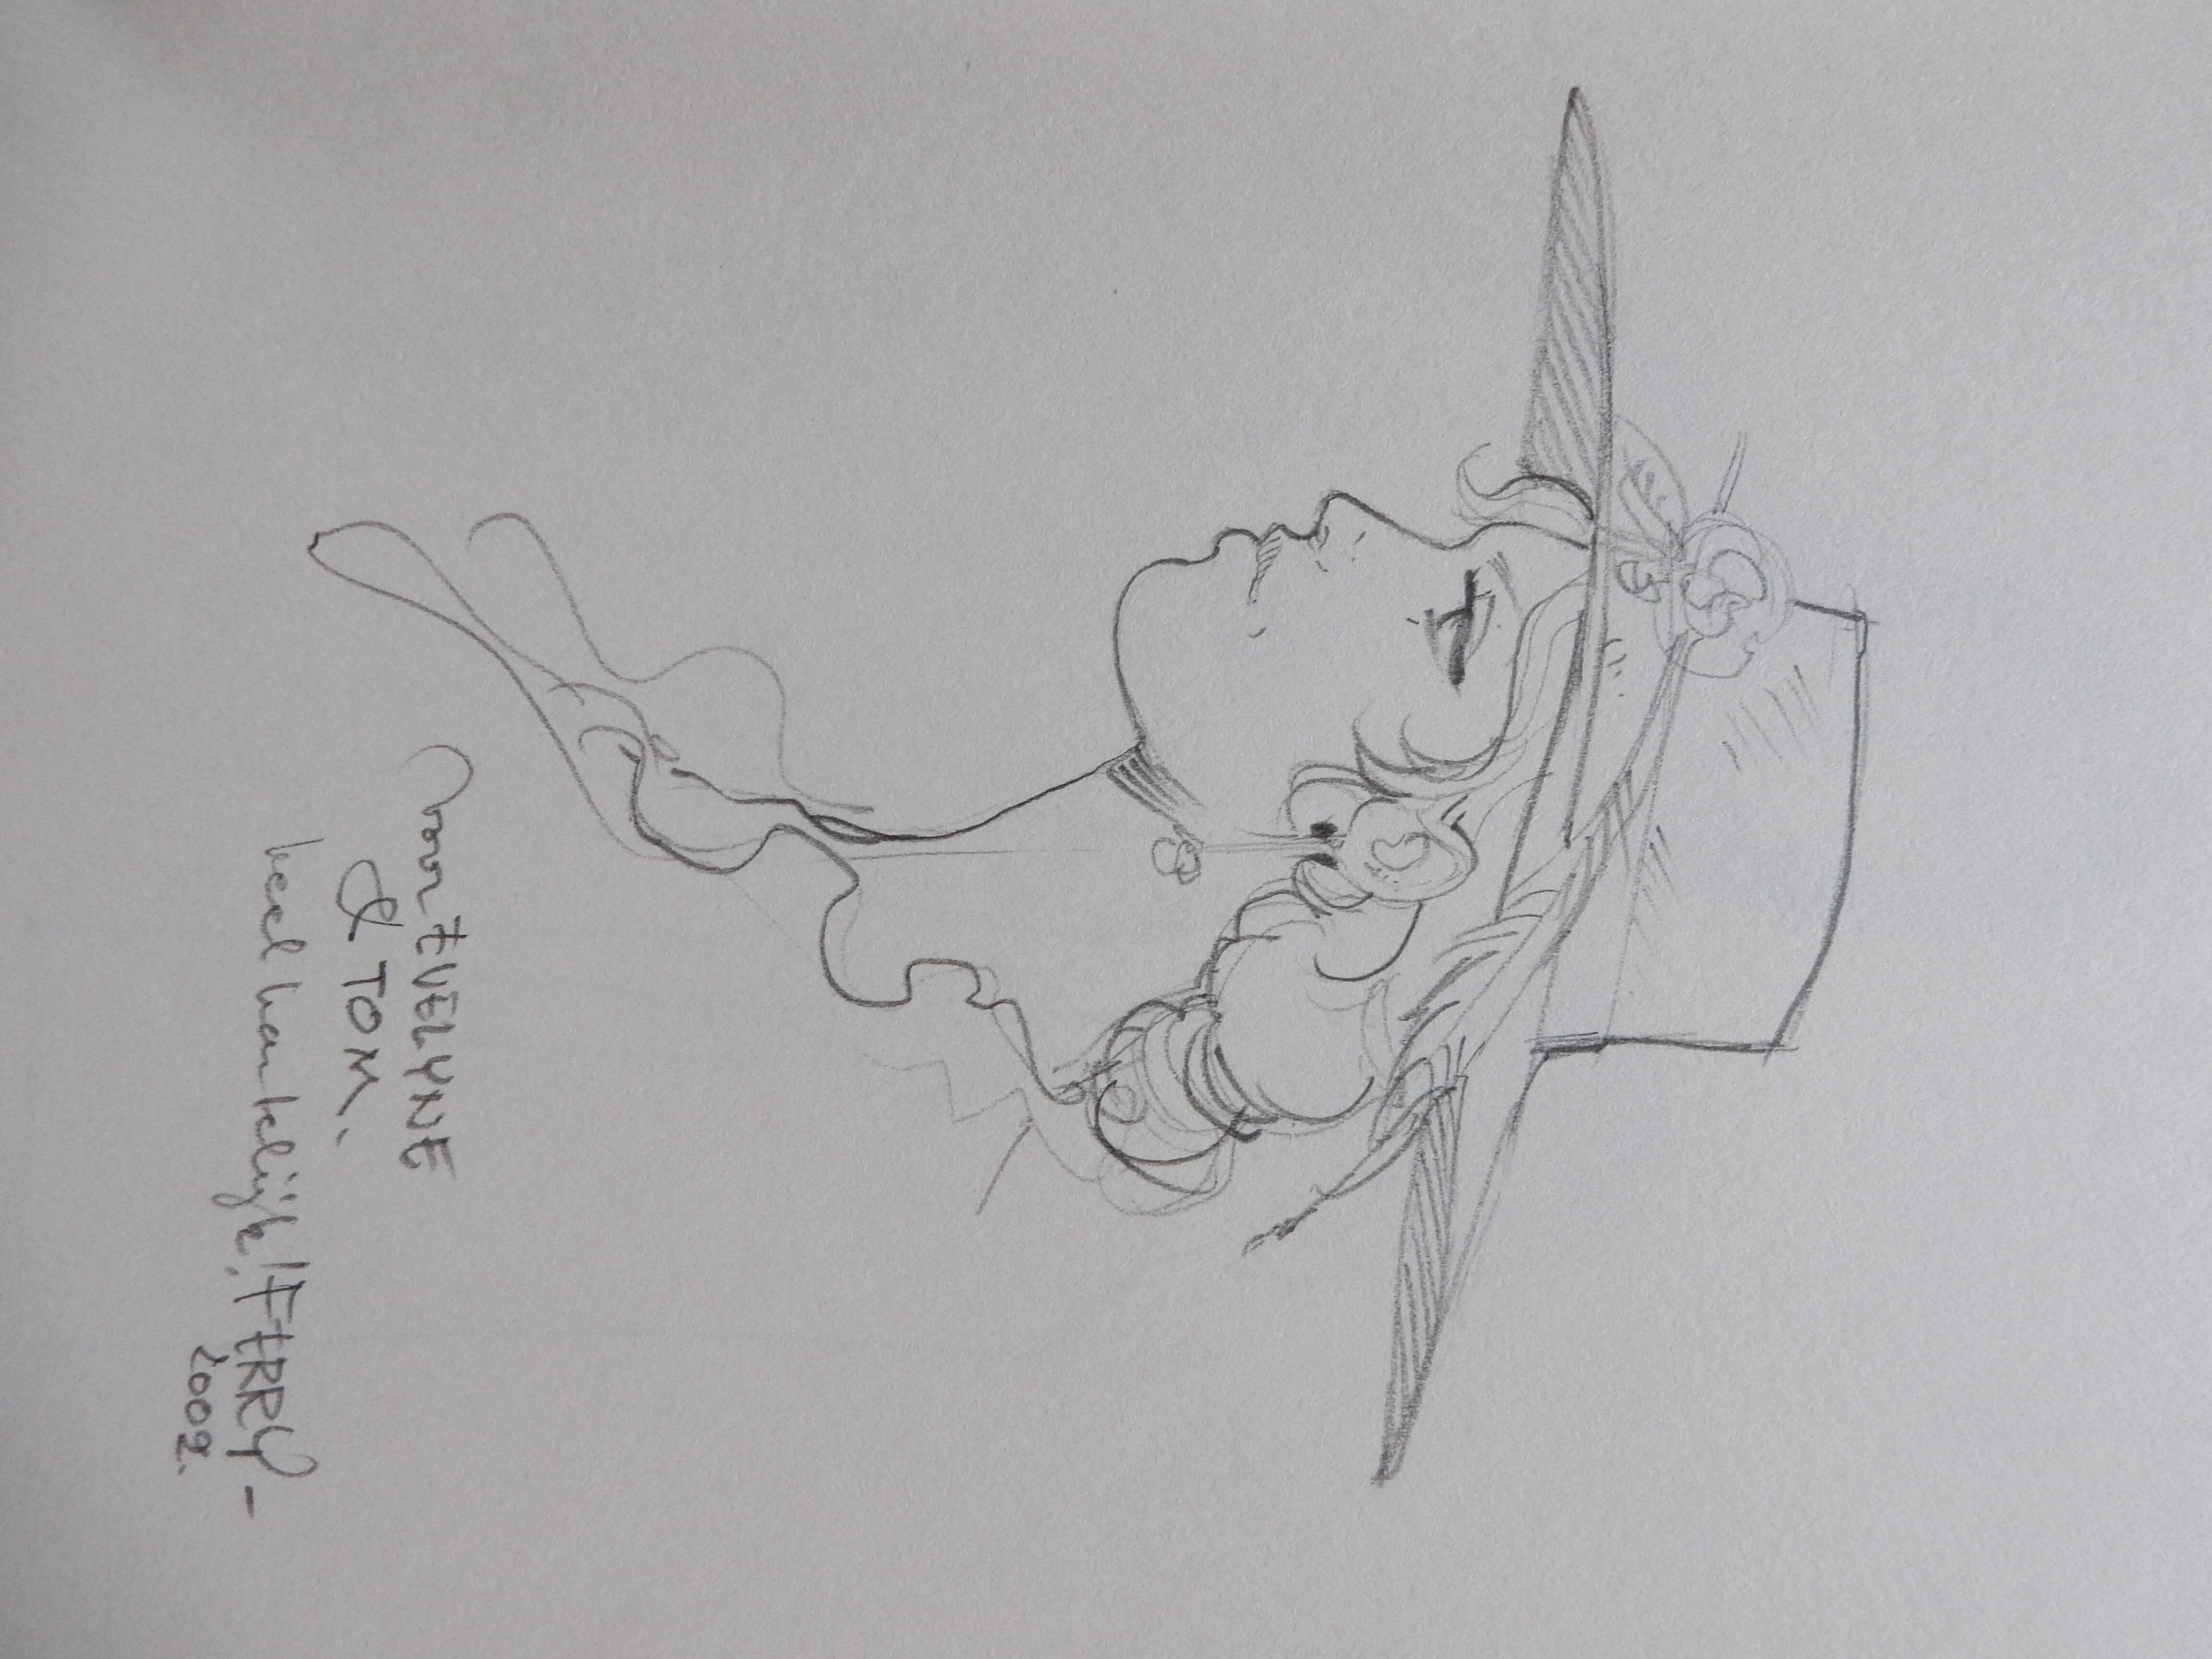 voor EVELYNE
& TOM.
heel hartelijk! FERRY -
2002.